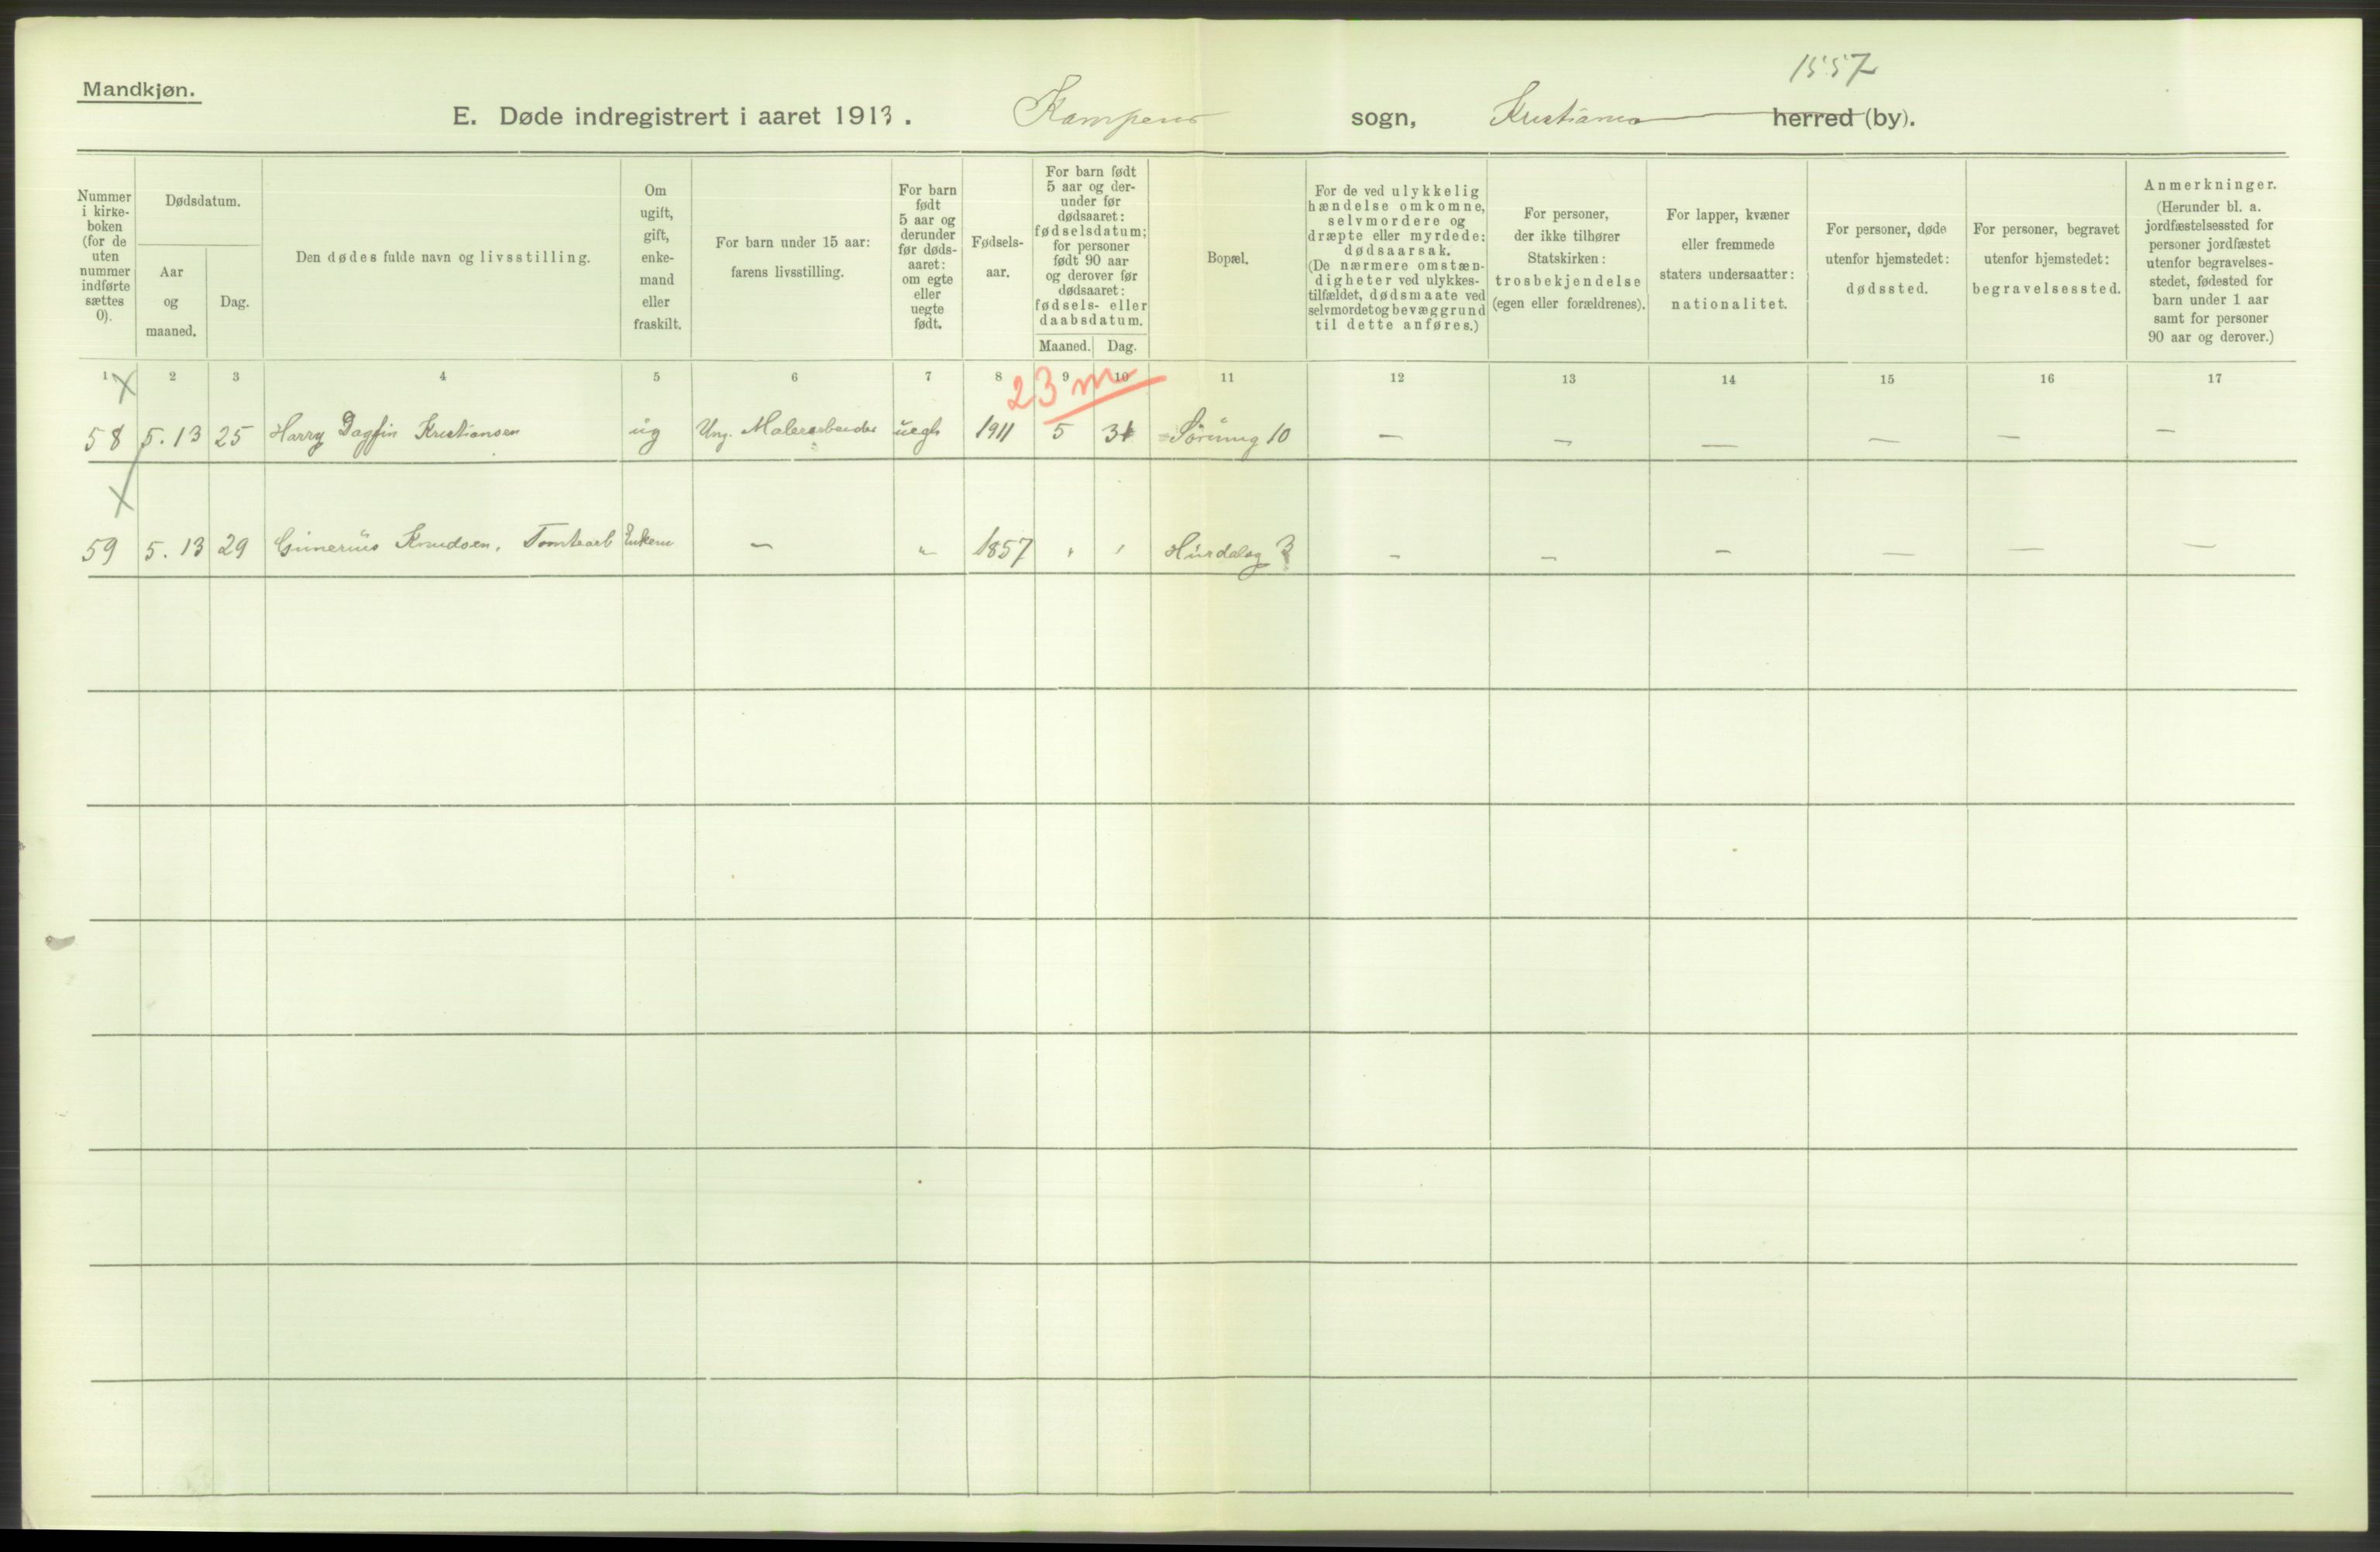 1557
Mandkjøn.
E. Døde indregistrert i aaret 1913. Kampens sogn, Kristiania herred (by).
Nummer i kirke-boken (for de uten nummer indførte sættes 0).
Dødsdatum.
Aar og maaned.
Dag.
Den dødes fulde navn og livsstilling.
Om ugift, gift, enke-mand eller fraskilt.
For barn under 15 aar: farens livsstilling.
For barn født 5 aar og derunder før døds-aaret: om egte eller uegte født.
Fødsels-aar.
For barn født 5 aar og der-under før dødsaaret: fødselsdatum; for personer født 90 aar og derover før dødsaaret: fødsels- eller daabsdatum.
Maaned. Dag.
Bopæl.
For de ved ulykkelig hændelse omkomne, selvmordere og dræpte eller myrdede: dødsaarsak. (De nærmere omstæn-digheter ved ulykkes-tilfældet, dødsmaate ved selvmordet og bevæggrund til dette anføres.)
For personer, der ikke tilhører Statskirken: trosbekjendelse (egen eller forældrenes).
For lapper, kvæner eller fremmede staters undersaatter: nationalitet.
For personer, døde utenfor hjemstedet: dødssted.
For personer, begravet utenfor hjemstedet: begravelsessted.
Anmerkninger. (Herunder bl. a. jordfæstelsessted for personer jordfæstet utenfor begravelses-stedet, fødested for barn under 1 aar samt for personer 90 aar og derover.)
1 2 3 4 5 6 7 8 9 10 11 12 13 14 15 16 17
X 23 m
58 5.13 25 Harry Dagfin Kristiansen ug Ung. Malerarbeider uegte 1911 5 31 Sörumg 10 — — — — — —
X
59 5.13 29 Gunerius Knudsen, Tomtearb Enkem — " 1857 " " Hurdalsg 3 — — — — — —